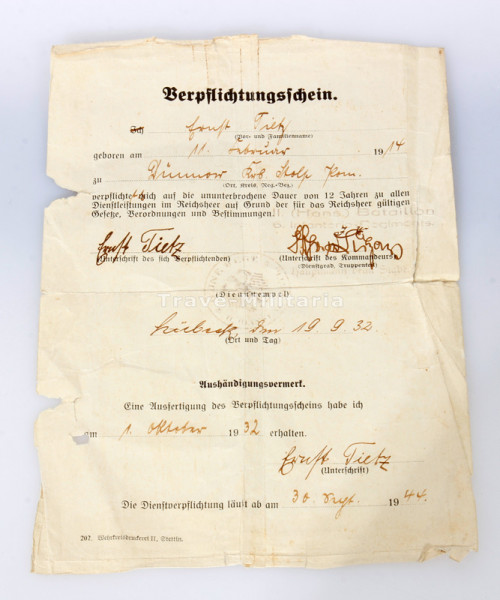 Verpflichtungsschein.
Ich Ernst Tietz
(Vor- und Familienname)
geboren am 11. Februar 1914.
zu Dünnow Krs Stolp Pom.
(Ort, Kreis, Reg.-Bez.)
verpflichtete sich auf die ununterbrochene Dauer von 12 Jahren zu allen
Dienstleistungen im Reichsheer auf Grund der für das Reichsheer gültigen
Gesetze, Verordnungen und Bestimmungen.
II (Hans.) Bataillon
6. Infanterie-Regiments
Ernst Tietz
(Unterschrift des sich Verpflichtenden) (Unterschrift des Kommandeurs
(Dienstgrad, Truppenteil)
(Dienststempel)
Trave-Militaria
Lübeck, den 19.9.32.
(Ort und Tag)
Aushändigungsvermerk.
Eine Ausfertigung des Verpflichtungsscheins habe ich
am 1. Oktober 1932 erhalten.
Ernst Tietz
(Unterschrift)
Die Dienstverpflichtung läuft ab am 30. Sept. 1944.
207. Wehrkreisdruckerei II, Stettin.